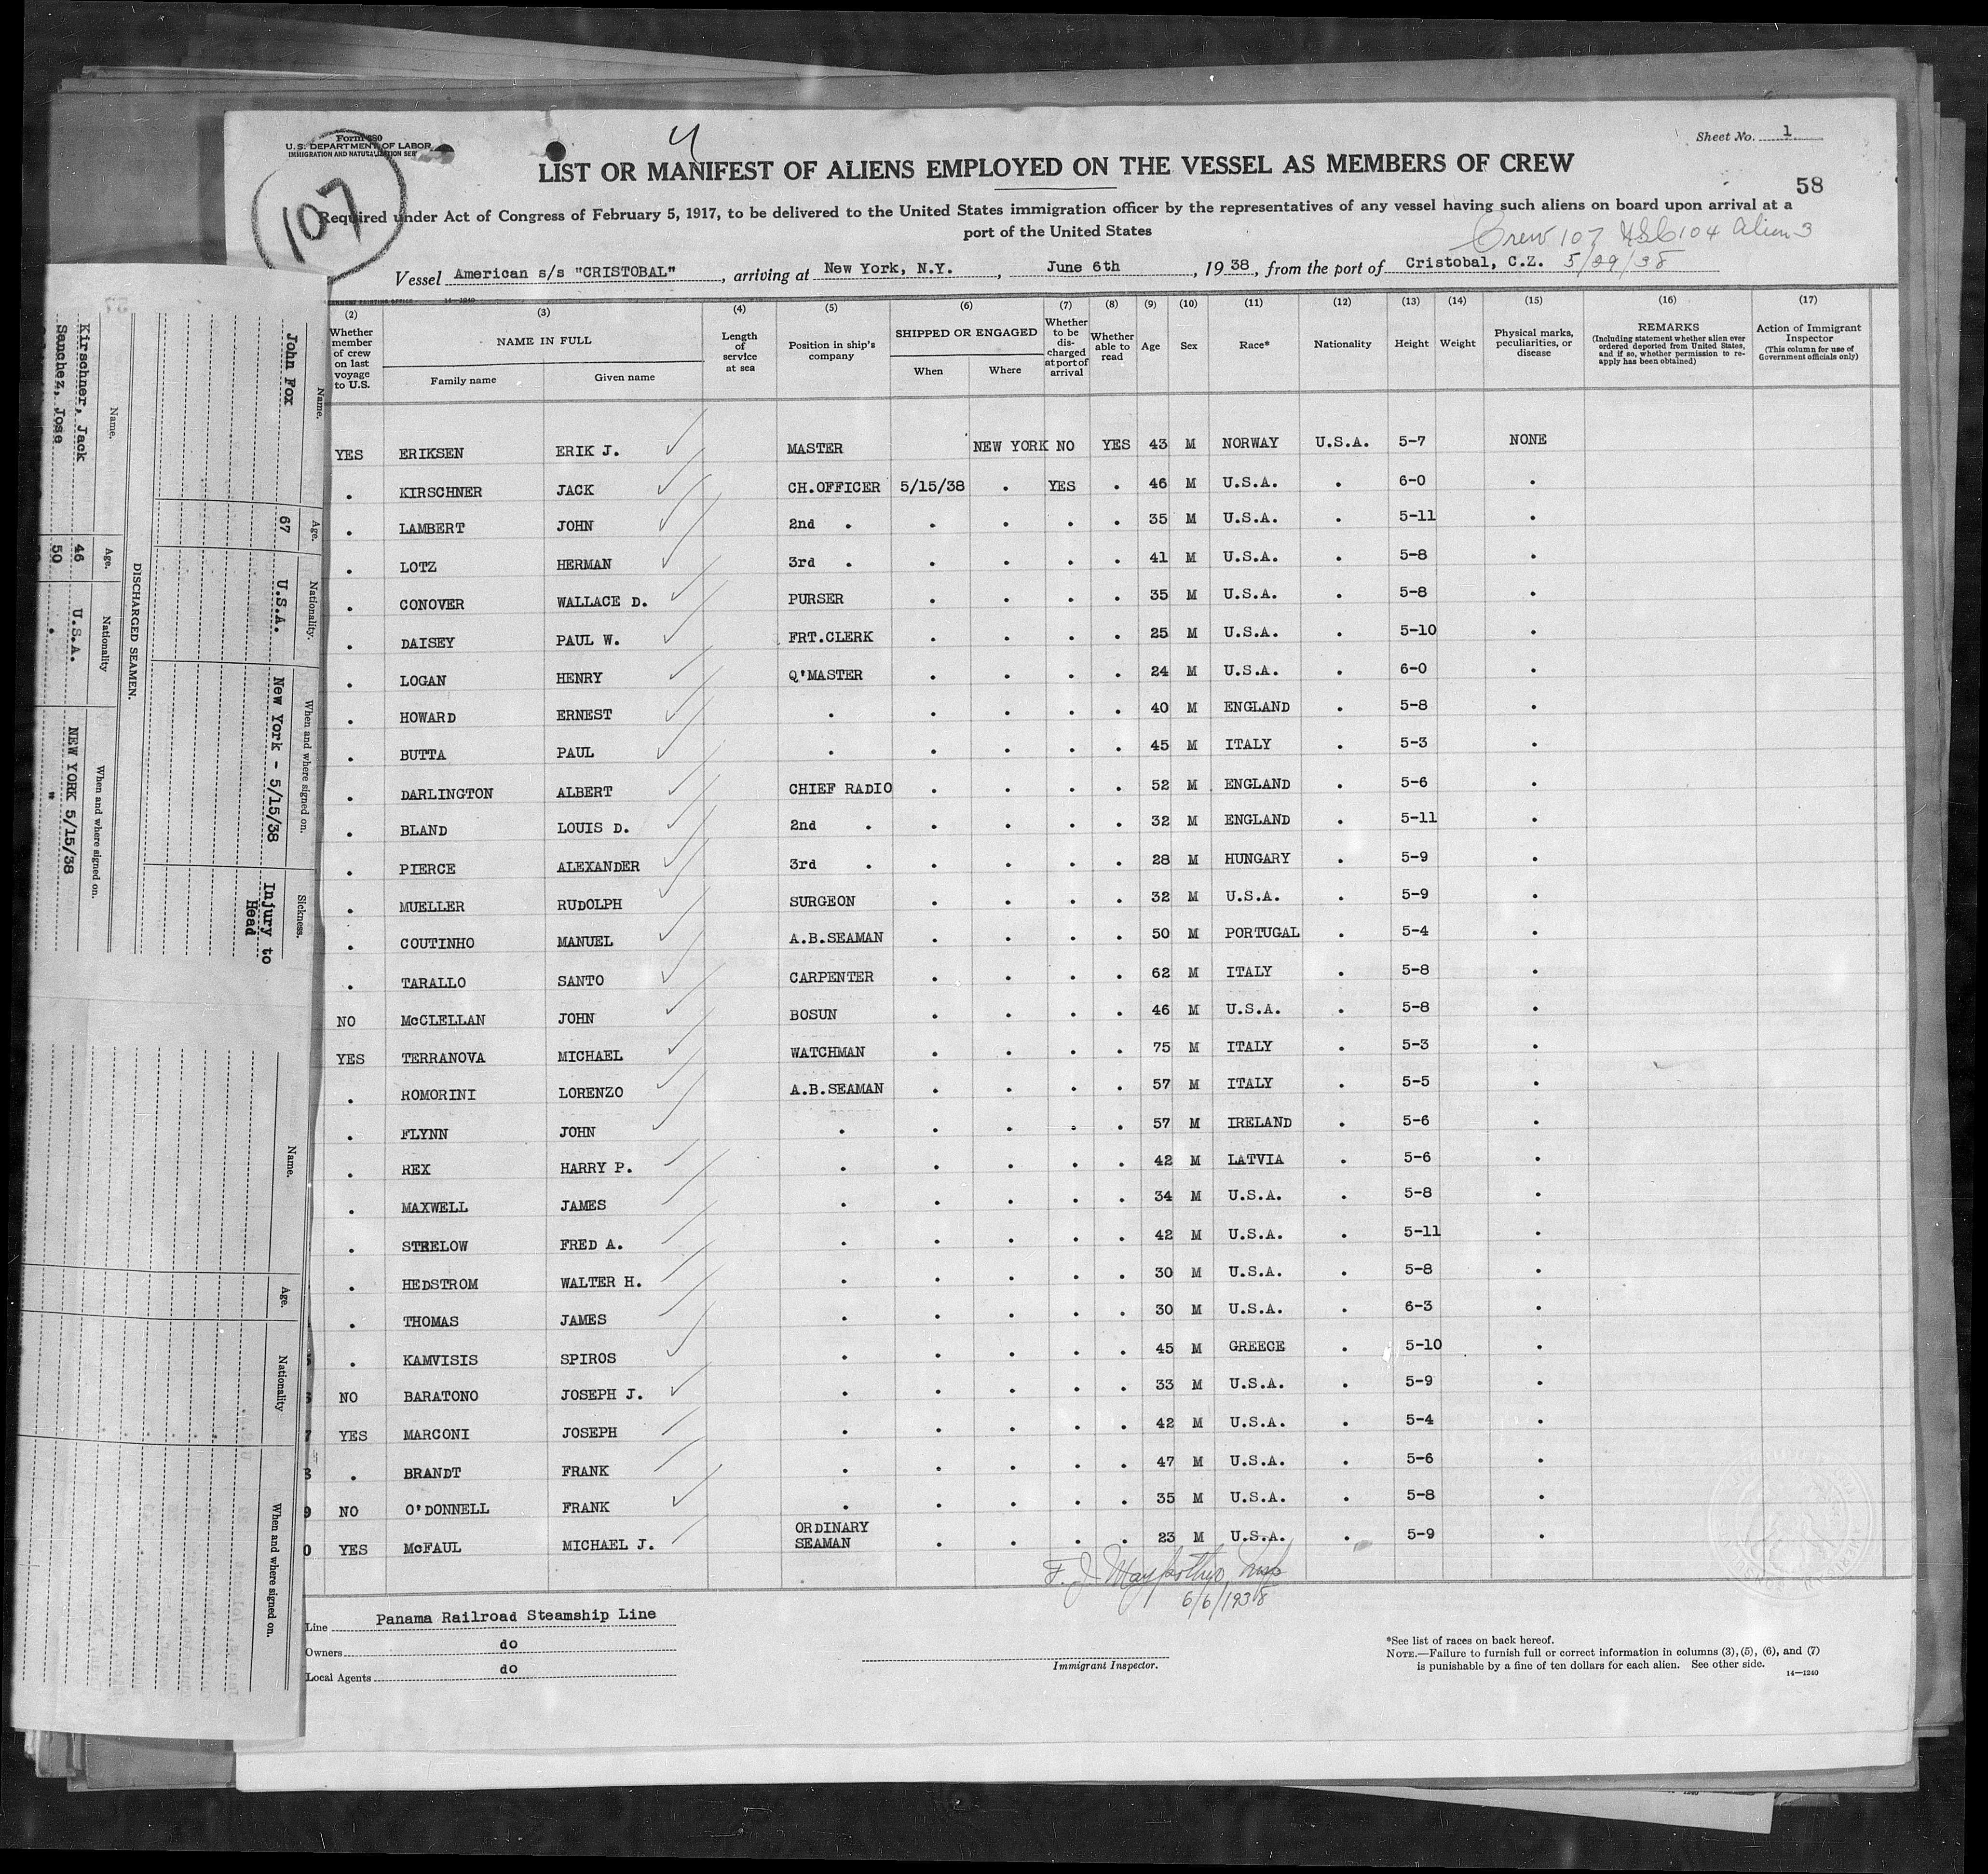 Form 680
U.S. DEPARTMENT OF LABOR
IMMIGRATION AND NATURALIZATION SER
107
4
Sheet No. 1
LIST OR MANIFEST OF ALIENS EMPLOYED ON THE VESSEL AS MEMBERS OF CREW
58
Required under Act of Congress of February 5, 1917, to be delivered to the United States immigration officer by the representatives of any vessel having such aliens on board upon arrival at a
port of the United States
Crew 107 USC 104 Alien 3
Vessel American s/s "CRISTOBAL", arriving at New York, N.Y., June 6th, 1938, from the port of Cristobal, C.Z. 5/29/38
(2) (3) (4) (5) (6) (7) (8) (9) (10) (11) (12) (13) (14) (15) (16) (17)
Whether member of crew on last voyage to U.S.
NAME IN FULL
Family name
Given name
Length of service at sea
Position in ship's company
SHIPPED OR ENGAGED
When
Where
Whether to be discharged at port of arrival
Whether able to read
Age
Sex
Race*
Nationality
Height
Weight
Physical marks, peculiarities, or disease
REMARKS
(Including statement whether alien ever ordered deported from United States, and if so, whether permission to reapply has been obtained)
Action of Immigrant Inspector
(This column for use of Government officials only)
YES ERIKSEN ERIK J. MASTER NEW YORK NO YES 43 M NORWAY U.S.A. 5-7 NONE
. KIRSCHNER JACK CH.OFFICER 5/15/38 . YES . 46 M U.S.A. . 6-0 .
. LAMBERT JOHN 2nd . . . . . 35 M U.S.A. . 5-11 .
. LOTZ HERMAN 3rd . . . . . 41 M U.S.A. . 5-8 .
. CONOVER WALLACE D. PURSER . . . . 35 M U.S.A. . 5-8 .
. DAISEY PAUL W. FRT.CLERK . . . . 25 M U.S.A. . 5-10 .
. LOGAN HENRY Q'MASTER . . . . 24 M U.S.A. . 6-0 .
. HOWARD ERNEST . . . . . 40 M ENGLAND . 5-8 .
. BUTTA PAUL . . . . . 45 M ITALY . 5-3 .
. DARLINGTON ALBERT CHIEF RADIO . . . . 52 M ENGLAND . 5-6 .
. BLAND LOUIS D. 2nd . . . . . 32 M ENGLAND . 5-11 .
. PIERCE ALEXANDER 3rd . . . . . 28 M HUNGARY . 5-9 .
. MUELLER RUDOLPH SURGEON . . . . 32 M U.S.A. . 5-9 .
. COUTINHO MANUEL A.B.SEAMAN . . . . 50 M PORTUGAL . 5-4 .
. TARALLO SANTO CARPENTER . . . . 62 M ITALY . 5-8 .
NO McCLELLAN JOHN BOSUN . . . . 46 M U.S.A. . 5-8 .
YES TERRANOVA MICHAEL WATCHMAN . . . . 75 M ITALY . 5-3 .
. ROMORINI LORENZO A.B.SEAMAN . . . . 57 M ITALY . 5-5 .
. FLYNN JOHN . . . . . 57 M IRELAND . 5-6 .
. REX HARRY P. . . . . . 42 M LATVIA . 5-6 .
. MAXWELL JAMES . . . . . 34 M U.S.A. . 5-8 .
. STRELOW FRED A. . . . . . 42 M U.S.A. . 5-11 .
. HEDSTROM WALTER H. . . . . . 30 M U.S.A. . 5-8 .
. THOMAS JAMES . . . . . 30 M U.S.A. . 6-3 .
. KAMVISIS SPIROS . . . . . 45 M GREECE . 5-10 .
NO BARATONO JOSEPH J. . . . . . 33 M U.S.A. . 5-9 .
7 YES MARCONI JOSEPH . . . . . 42 M U.S.A. . 5-4 .
8 . BRANDT FRANK . . . . . 47 M U.S.A. . 5-6 .
9 NO O'DONNELL FRANK . . . . . 35 M U.S.A. . 5-8 .
0 YES McFAUL MICHAEL J. ORDINARY SEAMAN . . . . 23 M U.S.A. . 5-9 .
6/6/1938
Line Panama Railroad Steamship Line
Owners do
Local Agents do
Immigrant Inspector.
*See list of races on back hereof.
NOTE.—Failure to furnish full or correct information in columns (3), (5), (6), and (7)
is punishable by a fine of ten dollars for each alien. See other side.
14—1240
Name. Age. Nationality. When and where signed on. Sickness.
John Fox 67 U.S.A. New York - 5/15/38 Injury to Head
DISCHARGED SEAMEN.
Name. Age. Nationality When and where signed on.
Kirschner, Jack 46 U.S.A. NEW YORK 5/15/38
Sanchez, Jose 50 . "
Name. Age. Nationality When and where signed on.